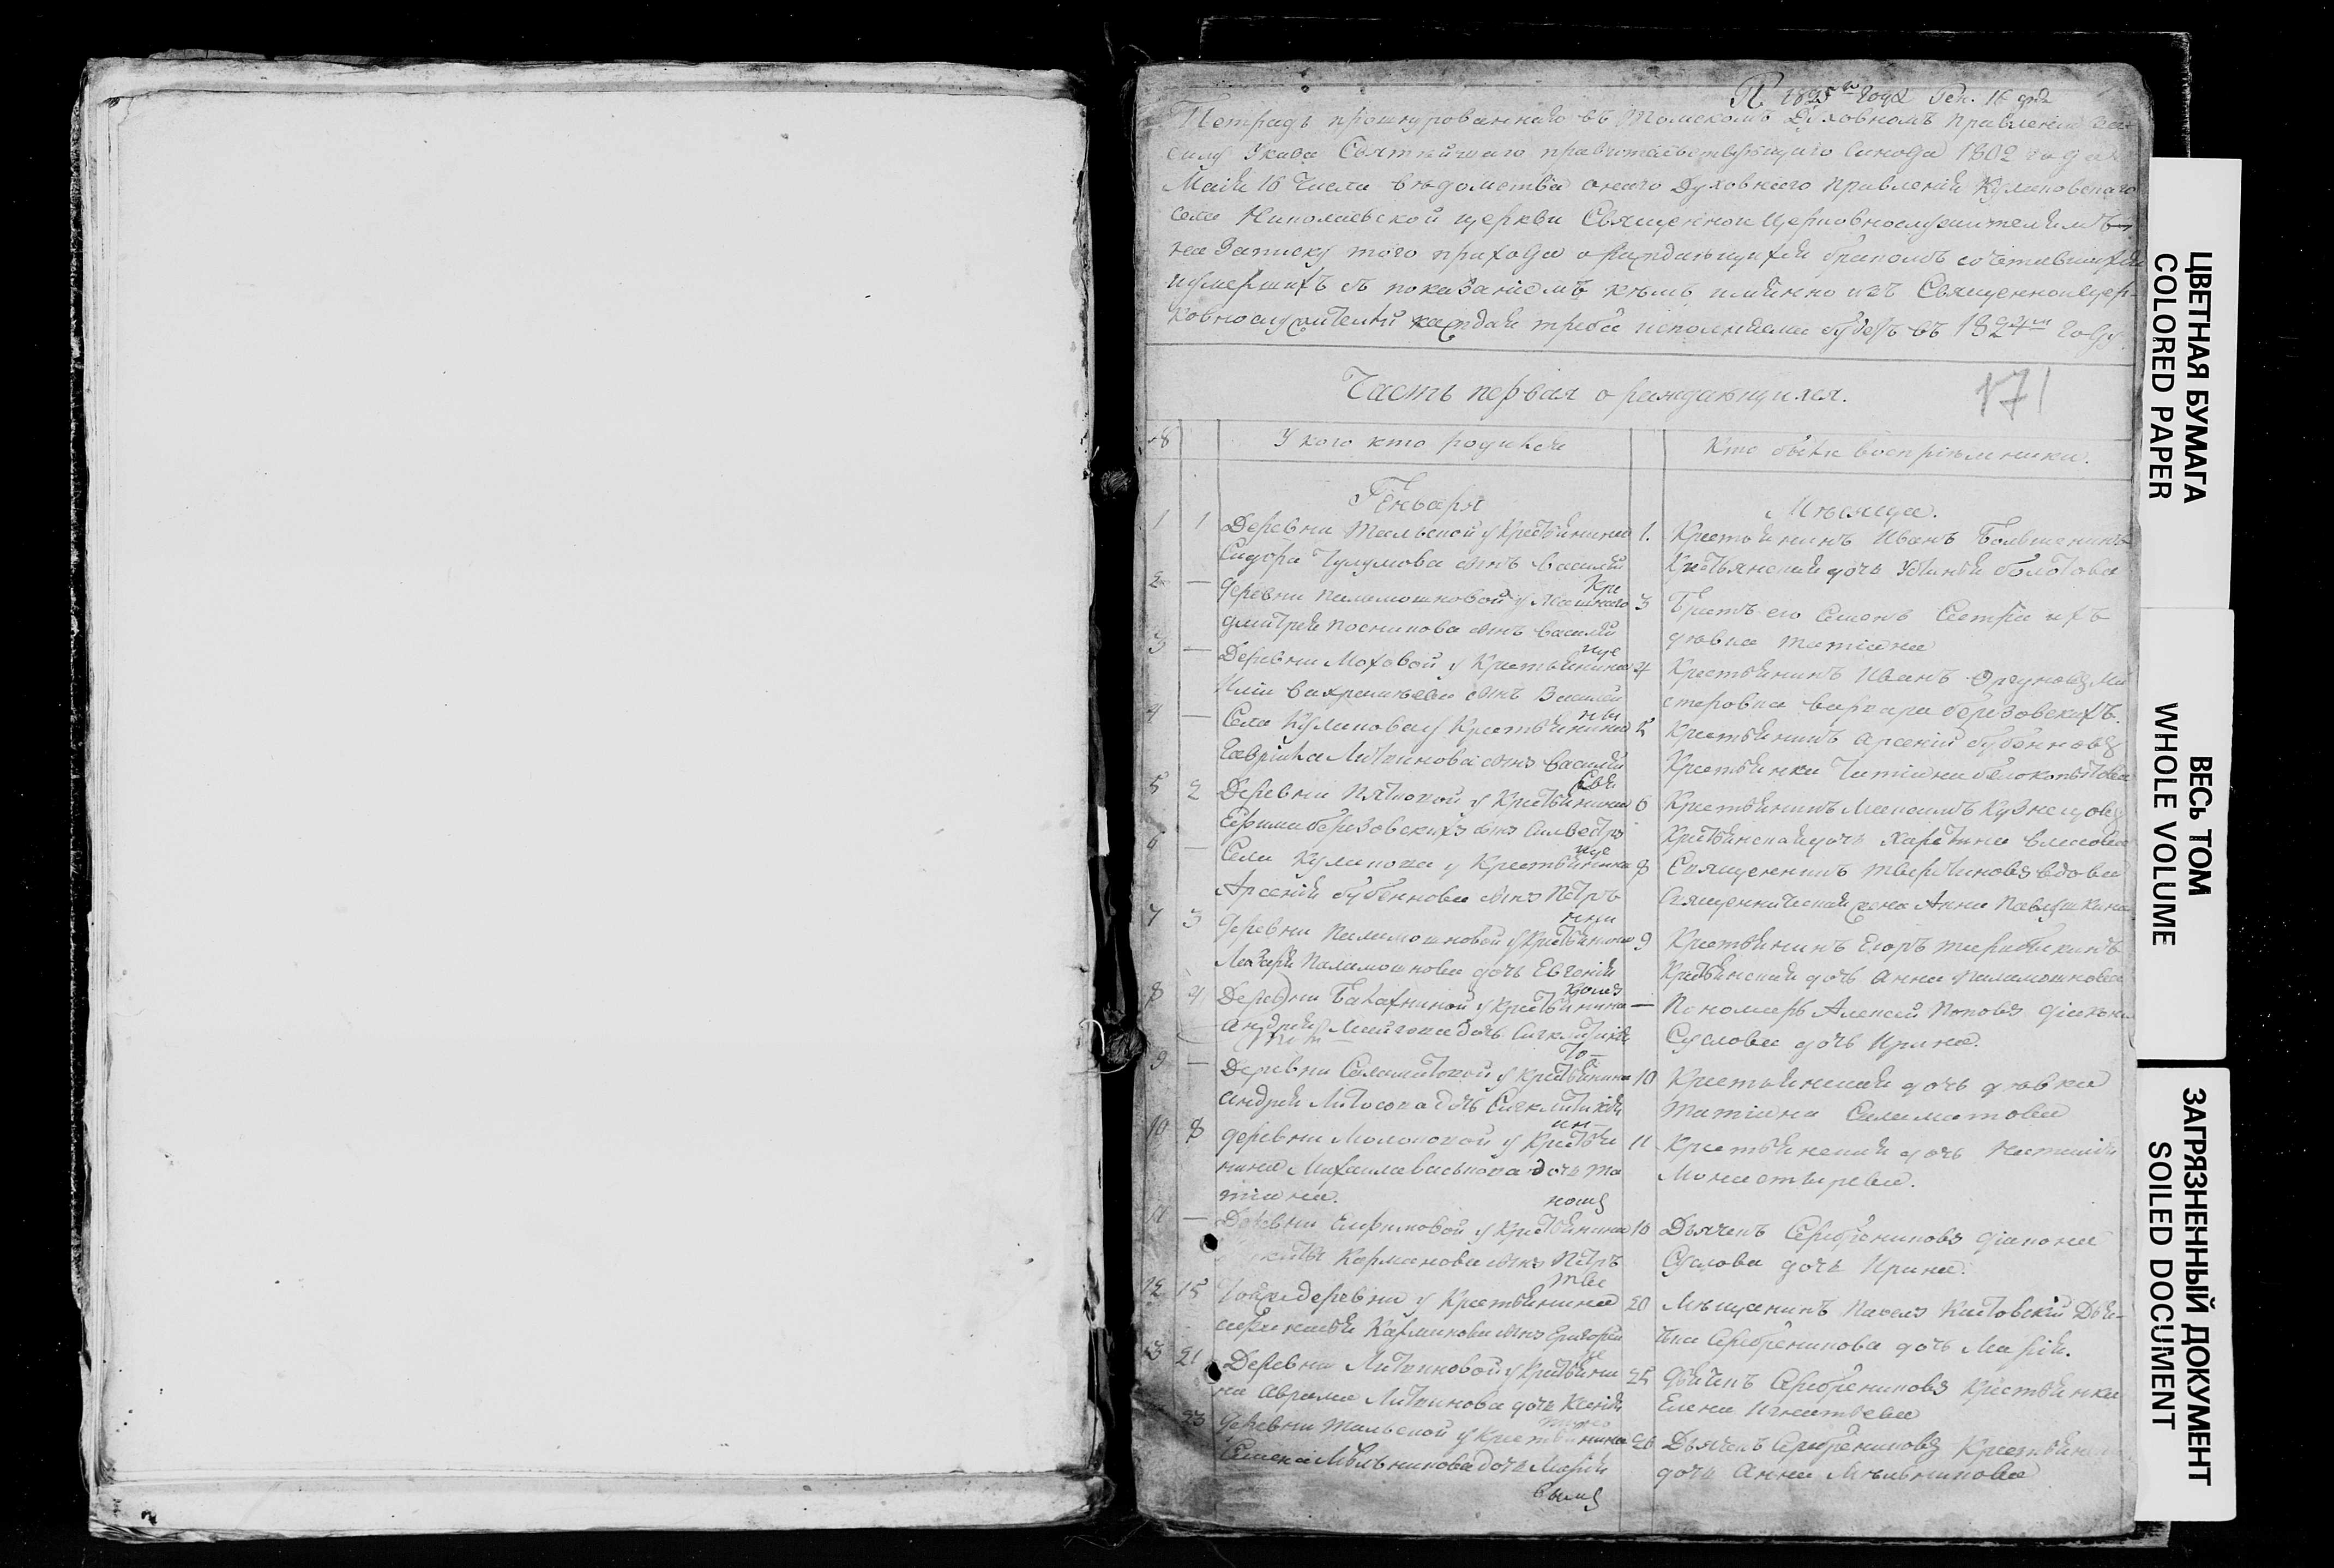 П. 1825го года Ген. 16 дня
Тетрадь прошнурованная въ Томскомъ Духовномъ Правленіи въ
силу Указа Святейшаго правительствующаго Синода 1802 года
Маія 16 числа ведомства онаго Духовнаго Правленія Кулаковскаго
села Николаевской церкви Священно и Церковнослужителямъ
на записку того прихода о раждающихся бракомъ сочетавшихся
и умершихъ съ показаніемъ кемъ имянно изъ Священно и Цер-
ковнослужителей каждая треба исполняема будетъ въ 1824мъ году.
Часть первая о раждающихся.
171
У кого кто родился
Кто были воспріемники.
Генваря
Месяца.
1 1 Деревни Тальской у Крестьянина
Сидора Чулумова сынъ Василій
1. Крестьянинъ Иванъ
Крестьянская дочь Устинья Болотова
2 — деревни Паламошновой у
Дмитрея Посникова сынъ Василій
3 Братъ его Семенъ Сестра ихъ
девка Татіана
3 — Деревни Моховой у Крестьянина
Иліи Вахрамеева сынъ Василей
4 Крестьянинъ Иванъ
Варвара Березовскихъ.
4 — Села Кулакова у Крестьянина
Гаврила Литвинова сынъ Василій
5 Крестьянинъ Арсеній Бубенновъ
Крестьянка Татіана Белокопытова
5 2 Деревни Пятковой у Крестьянина
Ефима Березовскихъ сынъ Силвестръ
6 Крестьянинъ Максимъ Кузнецовъ
Крестьянская дочь Харетина Власова
6 — Села Кулакова у Крестьянина
Арсенія Бубеннова сынъ Петръ
8 Священникъ Тверитиновъ вдова
Священническая жена Анна Павлушкина
7 3 Деревни Паламошновой у Крестьянина
Лазаря Паламошнова дочь Евгенія
9 Крестьянинъ Егоръ
Крестьянская дочь Анна Паламошнова
8 4 Деревни у Крестьянина
Андрея дочь Сигклитикія
— Пономарь Алексей Поповъ діакона
Суслова дочь Ирина.
9 — Деревни Саламатовой у Крестьянина
Андрея дочь Сигклитикія
10 Крестьянская дочь девка
Татіана Саламатова
10 8 деревни у Крестья
нина Михаила Васькова дочь Та
тіана.
11 Крестьянская дочь Настасія
Монастырева.
11 — Деревни Елфимовой у Крестьянина
Корманова сынъ Петръ
16 Дьячекъ Серебрениковъ діакона
Суслова дочь Ирина.
12 15 Той же деревни у Крестьянина
Карманова сынъ Григорей
20 Мещанинъ Павелъ Дья-
чка Серебреникова дочь Марія.
13 21 Деревни Литвиновой у Крестьяни
на Аврама Литвинова дочь Ксенія
25 Дьячекъ Серебрениковъ Крестьянка
Елена Игнатьева
23 Деревни Тальской у Крестьянина
Семена Мельникова дочь Марія
26 Дьячекъ Серебрениковъ Крестьянская
дочь Анна Мельникова
ЦВЕТНАЯ БУМАГА
COLORED PAPER
ВЕСЬ ТОМ
WHOLE VOLUME
ЗАГРЯЗНЕННЫЙ ДОКУМЕНТ
SOILED DOCUMENT